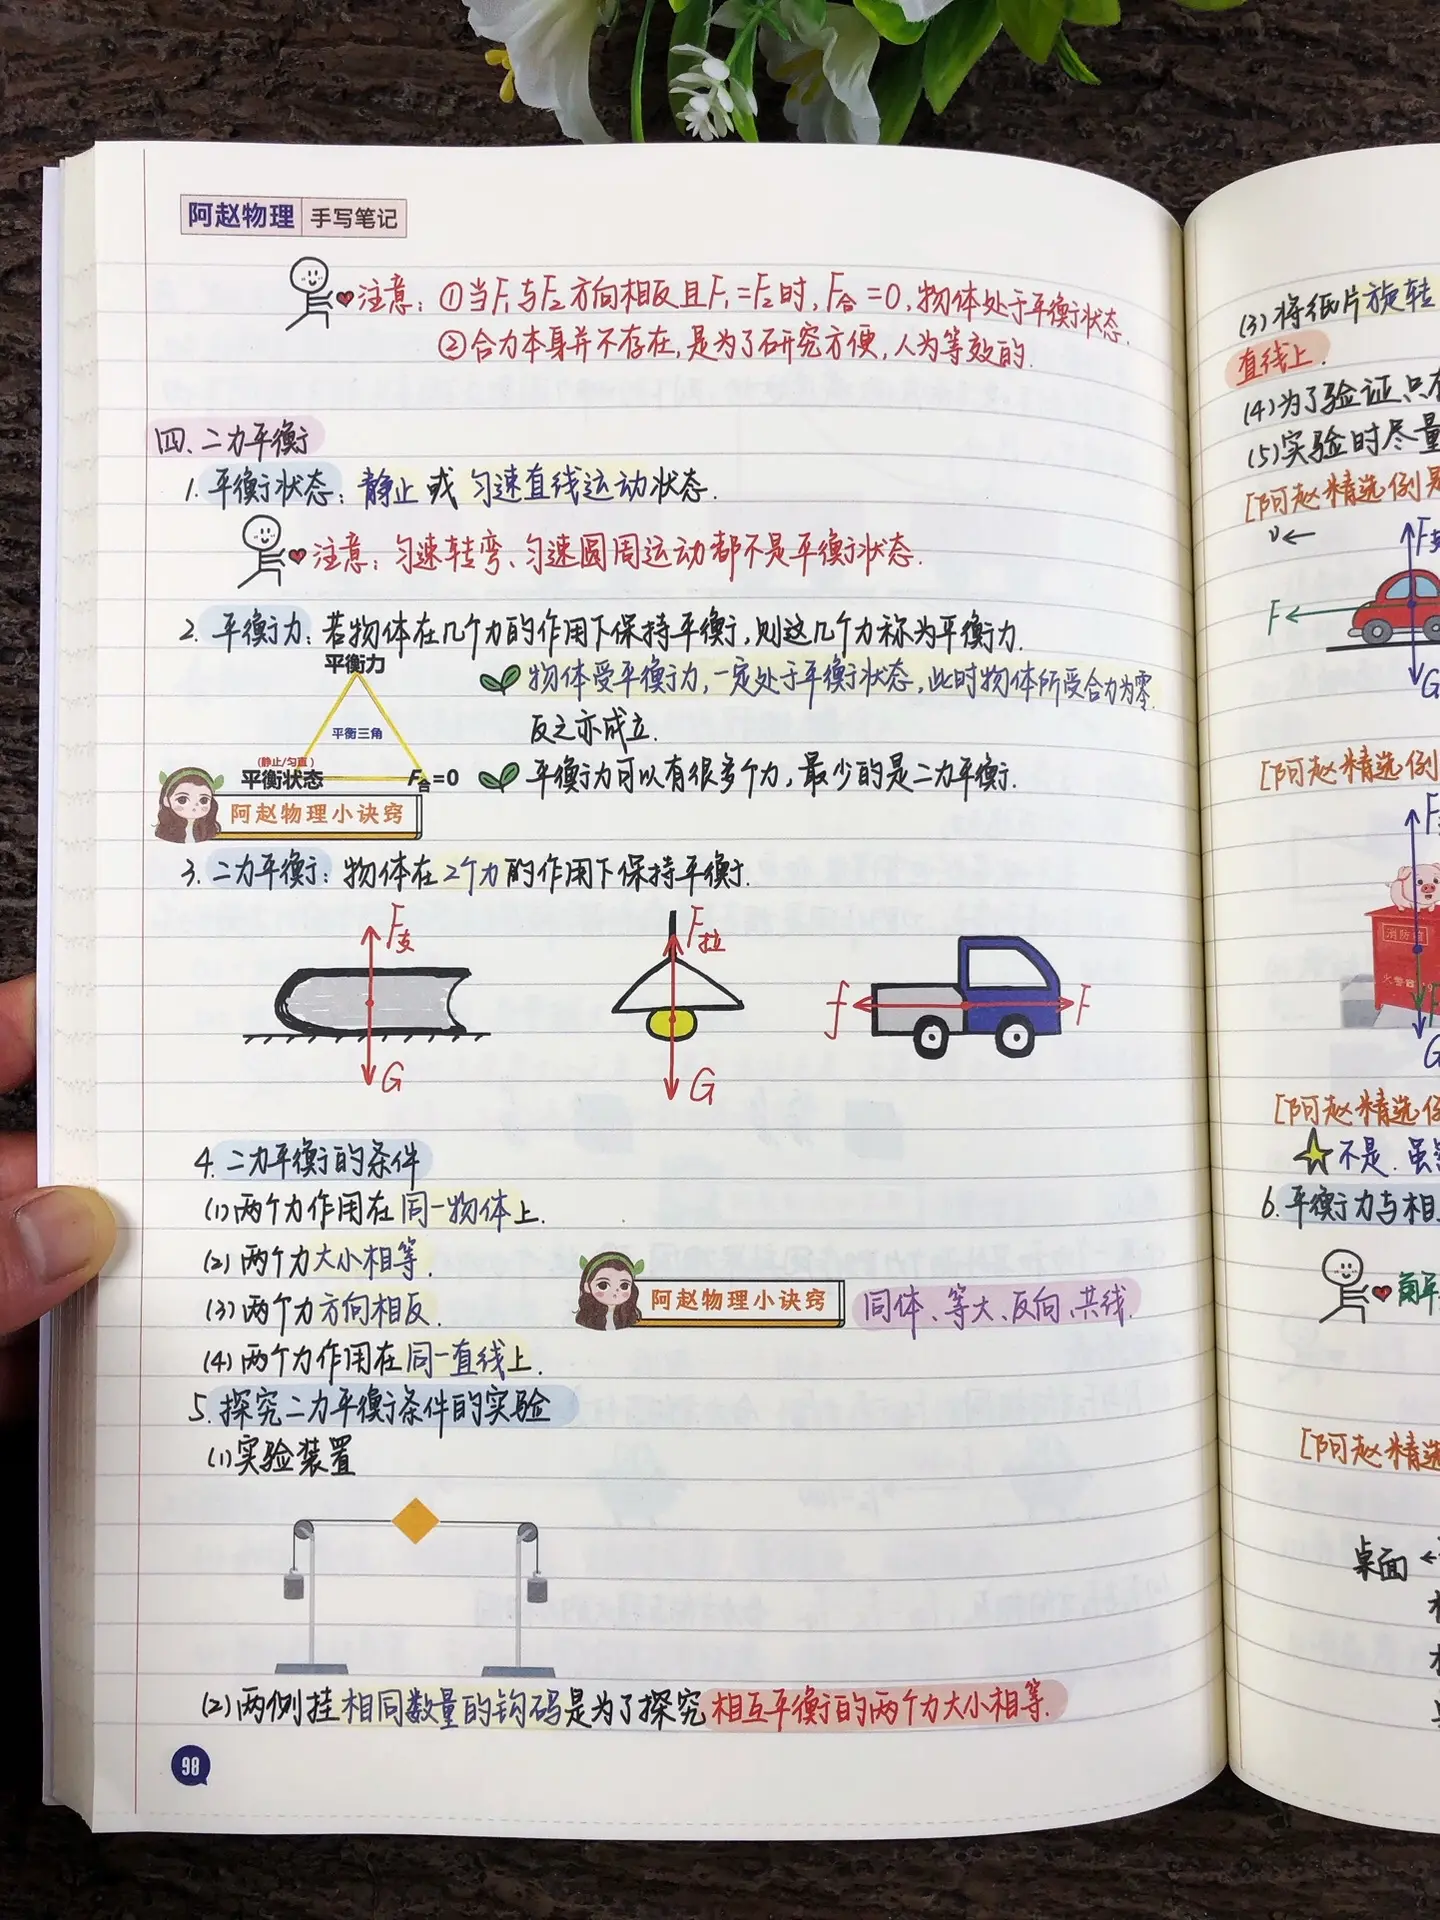 阿赵物理 手写笔记
注意：①当F₁与F₂方向相反且F₁=F₂时，F合=0，物体处于平衡状态.
②合力本身并不存在，是为了研究方便，人为等效的.
四、二力平衡
1. 平衡状态：静止或匀速直线运动状态.
注意：匀速转弯、匀速圆周运动都不是平衡状态.
2. 平衡力：若物体在几个力的作用下保持平衡，则这几个力称为平衡力.
平衡力
平衡三角
(静止/匀直)
平衡状态 F合=0
物体受平衡力，一定处于平衡状态，此时物体所受合力为零.
反之亦成立.
平衡力可以有很多个力，最少的是二力平衡.
阿赵物理小诀窍
3. 二力平衡：物体在2个力的作用下保持平衡.
F支 F拉
f F
G G
4. 二力平衡的条件
(1)两个力作用在同一物体上.
(2)两个力大小相等.
(3)两个力方向相反.
(4)两个力作用在同一直线上.
阿赵物理小诀窍 同体、等大、反向、共线.
5. 探究二力平衡条件的实验
(1)实验装置
(2)两侧挂相同数量的钩码是为了探究相互平衡的两个力大小相等.
98
(3)将纸片旋转
直线上.
(4)为了验证只
(5)实验时尽量
[阿赵精选例
v
F
G
[阿赵精选例
消防箱
火警
G
[阿赵精选
不是.虽
6. 平衡力与相
[阿赵精选
桌面